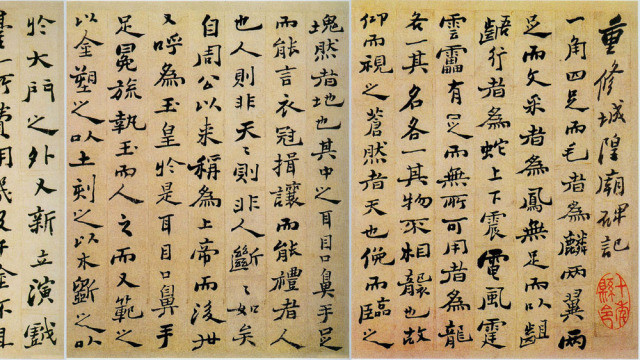 重修城隍廟碑記
一角四足而毛者為麟兩翼兩
足而文采者為鳳無足而以齟
齬行者為蛇上下震電風霆
雲靁有足而無所可用者為龍
各一其名各一其物不相襲也故
仰而視之蒼然者天也俛而臨之
塊然者地也其中之耳目口鼻手足
而能言衣冠揖讓而能禮者人
也人則非天〻則非人〻如矣
自周公以來稱為上帝而後世
又呼為玉皇於是耳目口鼻手
足冕旒執玉而人之而又範之
以金塑之以土刻之以木斲之以
於大門之外又新立演戲
一所費用幾及千金不且